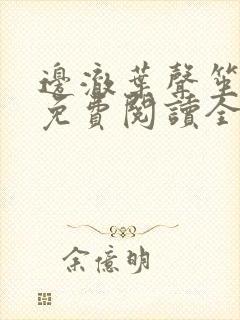 邊澈葉聲笙
免費閱讀全
余億明